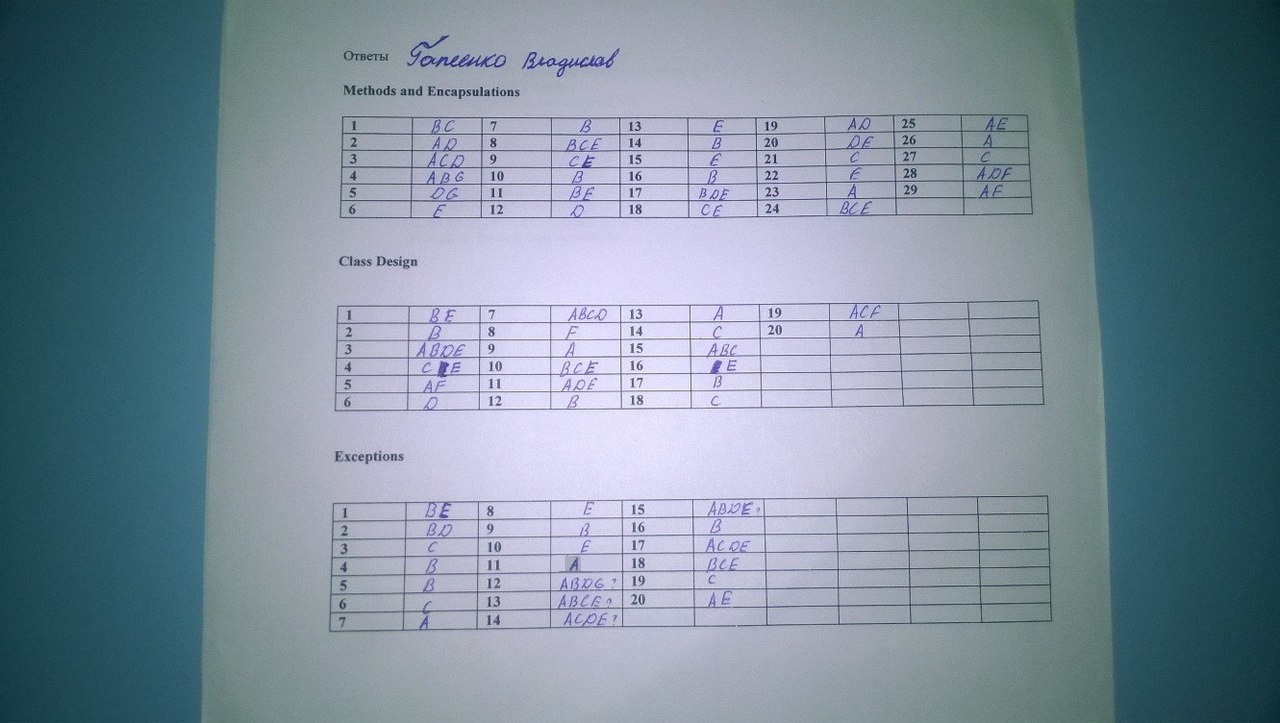 Ответы Гапеенко Владислав
Methods and Encapsulations
1 BC 7 B 13 E 19 AD 25 AE
2 AD 8 BCE 14 B 20 DE 26 A
3 ACD 9 CE 15 E 21 C 27 C
4 ABG 10 B 16 B 22 E 28 ADF
5 DG 11 BE 17 BDE 23 A 29 AF
6 E 12 D 18 CE 24 BCE
Class Design
1 BE 7 ABCD 13 A 19 ACF
2 B 8 F 14 C 20 A
3 ABDE 9 A 15 ABC
4 C E 10 BCE 16 E
5 AF 11 ADE 17 B
6 D 12 B 18 C
Exceptions
1 BE 8 E 15 ABDE?
2 BD 9 B 16 B
3 C 10 E 17 ACDE
4 B 11 A 18 BCE
5 B 12 ABDG? 19 C
6 C 13 ABCE? 20 AE
7 A 14 ACDE?